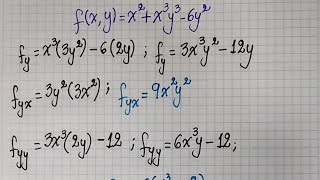 f(x,y)=x²+x³y³-6y²
f_y=x³(3y²)-6(2y) ; f_y=3x³y²-12y
f_yx=3y²(3x²); f_yx=9x²y²
f_yy=3x³(2y)-12 ; f_yy=6x³y-12;